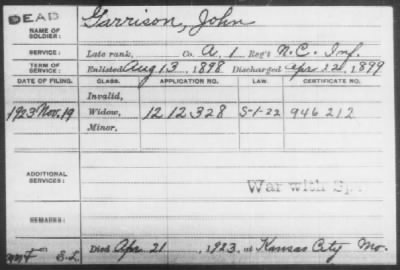 DEAD
NAME OF SOLDIER: Garrison, John
SERVICE: Late rank, Co. A. 1 Reg't N.C. Inf.
TERM OF SERVICE: Enlisted Aug 13, 1898 Discharged Apr. 22, 1899
DATE OF FILING. CLASS. APPLICATION NO. LAW. CERTIFICATE NO.
Invalid,
1923 Nov. 19 Widow, 1212328 S-1-22 946212
Minor,
ADDITIONAL SERVICES:
War with Sp
REMARKS:
Died Apr. 21, 1923, at Kansas City Mo.